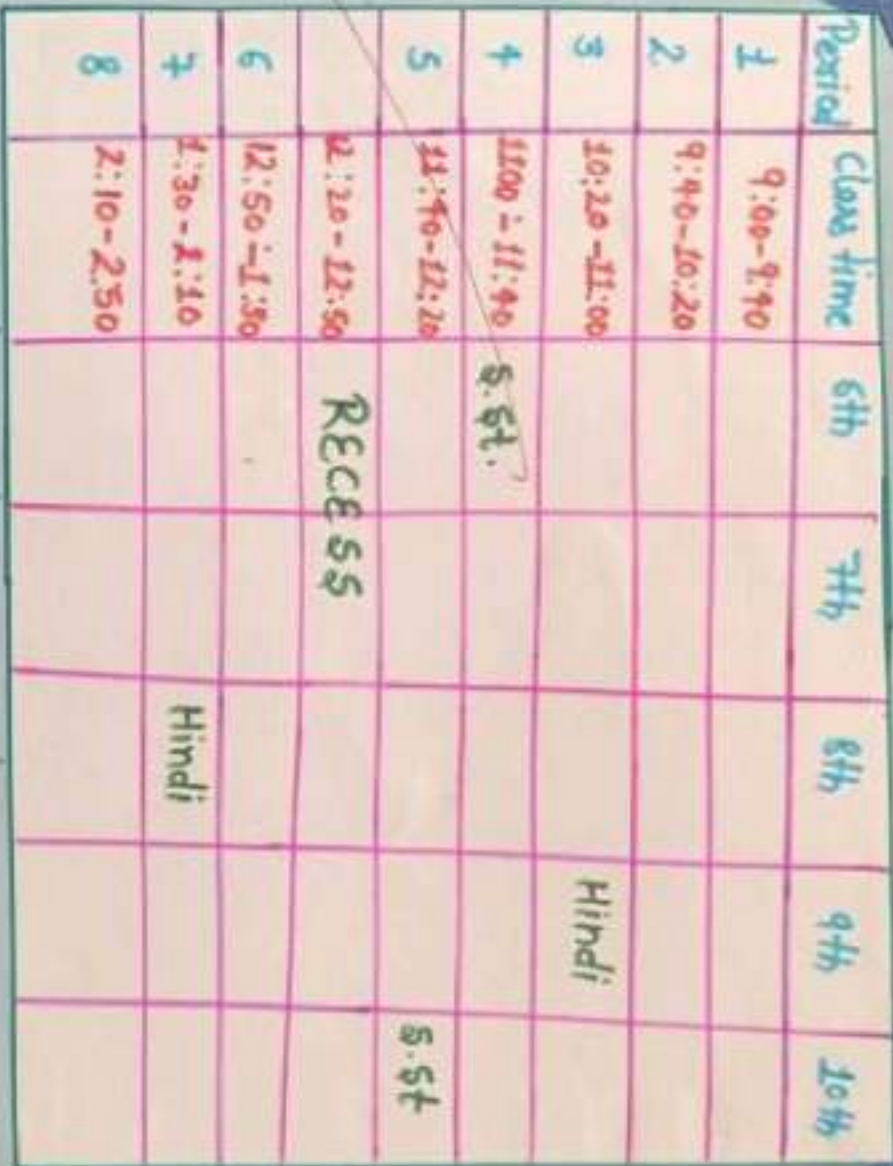 Period Class time 6th 7th 8th 9th 10th
1 9:00-9:40
2 9:40-10:20
3 10:20-11:00 Hindi
4 1100-11:40 S.St.
5 11:40-12:20 S.St
12:20-12:50 RECESS
6 12:50-1:30
7 1:30-2:10 Hindi
8 2:10-2:50